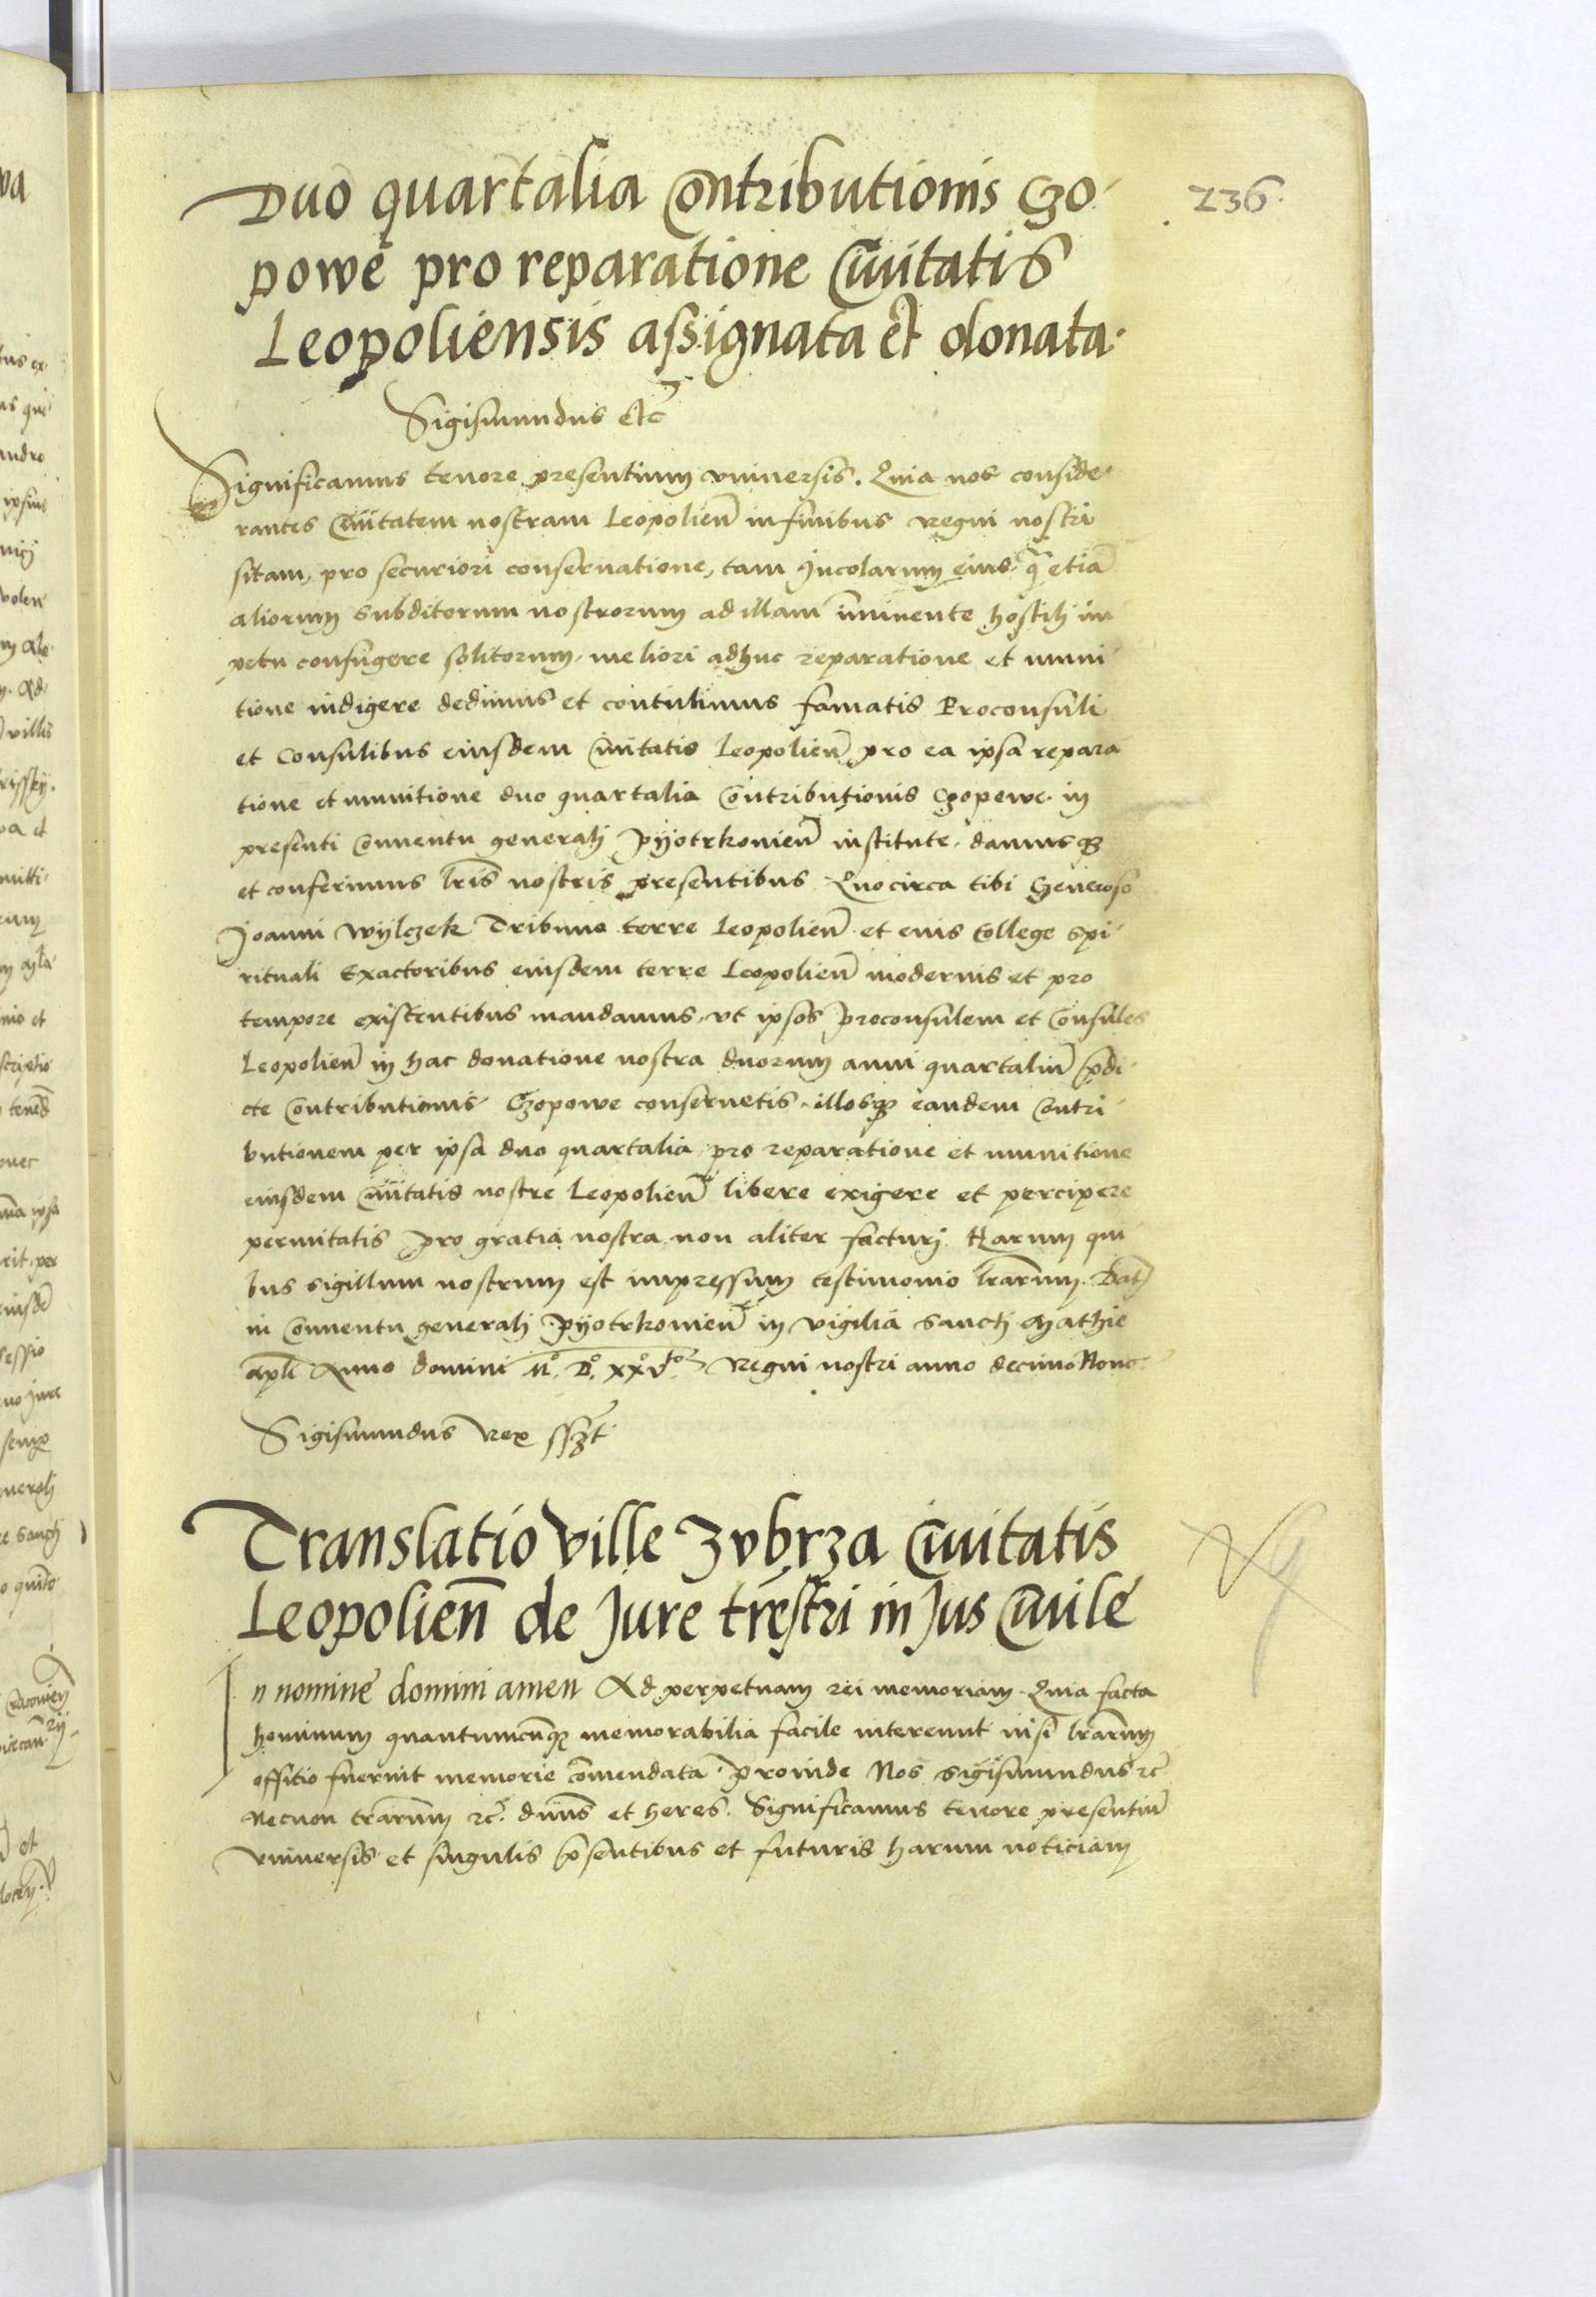 236.
Duo quartalia Contributionis Czo-
powe pro reparatione Civitatis
Leopoliensis assignata et donata.
Sigismundus etc̃
Significamus tenore presentium vniversis. Quia nos conside-
rantes Civitatem nostram Leopolien̄ in finibus regni nostri
sitam, pro securiori conservatione, tam Incolarum eius, q̃ etiã
aliorum subditorum nostrorum ad illam im̄inente hostili im
petu confugere solitorum, meliori adhuc reparatione et muni
tione indigere dedimus et contulimus famatis Proconsuli
et Consulibus eiusdem Civitatis Leopolien̄ pro ea ipsa repara
tione et munitione duo quartalia Contributionis Czopowe in
presenti Conventu generali Pyotrkovien̄ institute, damusq₃
et conferimus lr̄is nostris presentibus Quocirca tibi Generoso
Joanni Wylczek Tribuno terre Leopolien̄ et eius College spi
rituali Exactoribus eiusdem terre Leopolien̄ modernis et pro
tempore existentibus mandamus, vt ipsos Proconsulem et Consules
Leopolien̄ in hac donatione nostra duorum anni quartaliū p̄di
cte Contributionis Czopowe conservetis, illosq₃ eandem Contri
butionem per ipsa duo quartalia pro reparatione et munitione
eiusdem Civitatis nostre Leopolien̄ libere exigere et percipere
permitatis Pro gratia nostra non aliter facturj Harum qui
bus sigillum nostrum est impressum testimonio lr̄arum. Dat̃
in Conventu generali Pyotrkovien̄ in vigilia sancti Mathie
apl̄i Anno domini M° D° xx° vto Regni nostri anno decimo Nono
Sigismundus Rex sszt
Translatio ville Zvbrza Civitatis
Leopolien̄ de Jure tr̄estri in Jus Civile
In nomine domini amen Ad perpetuam rei memoriam Quia facta
hominum quantumcūq₃ memorabilia facile intereunt nisi lr̄arum
offitio fuerint memorie com̄endata, Proinde Nos Sigismundus &c̃
Necnon tr̄arum &c̃. dn̄us et heres. Significamus tenore presentiū
vniversis et singulis p̄sentibus et futuris harum noticiam